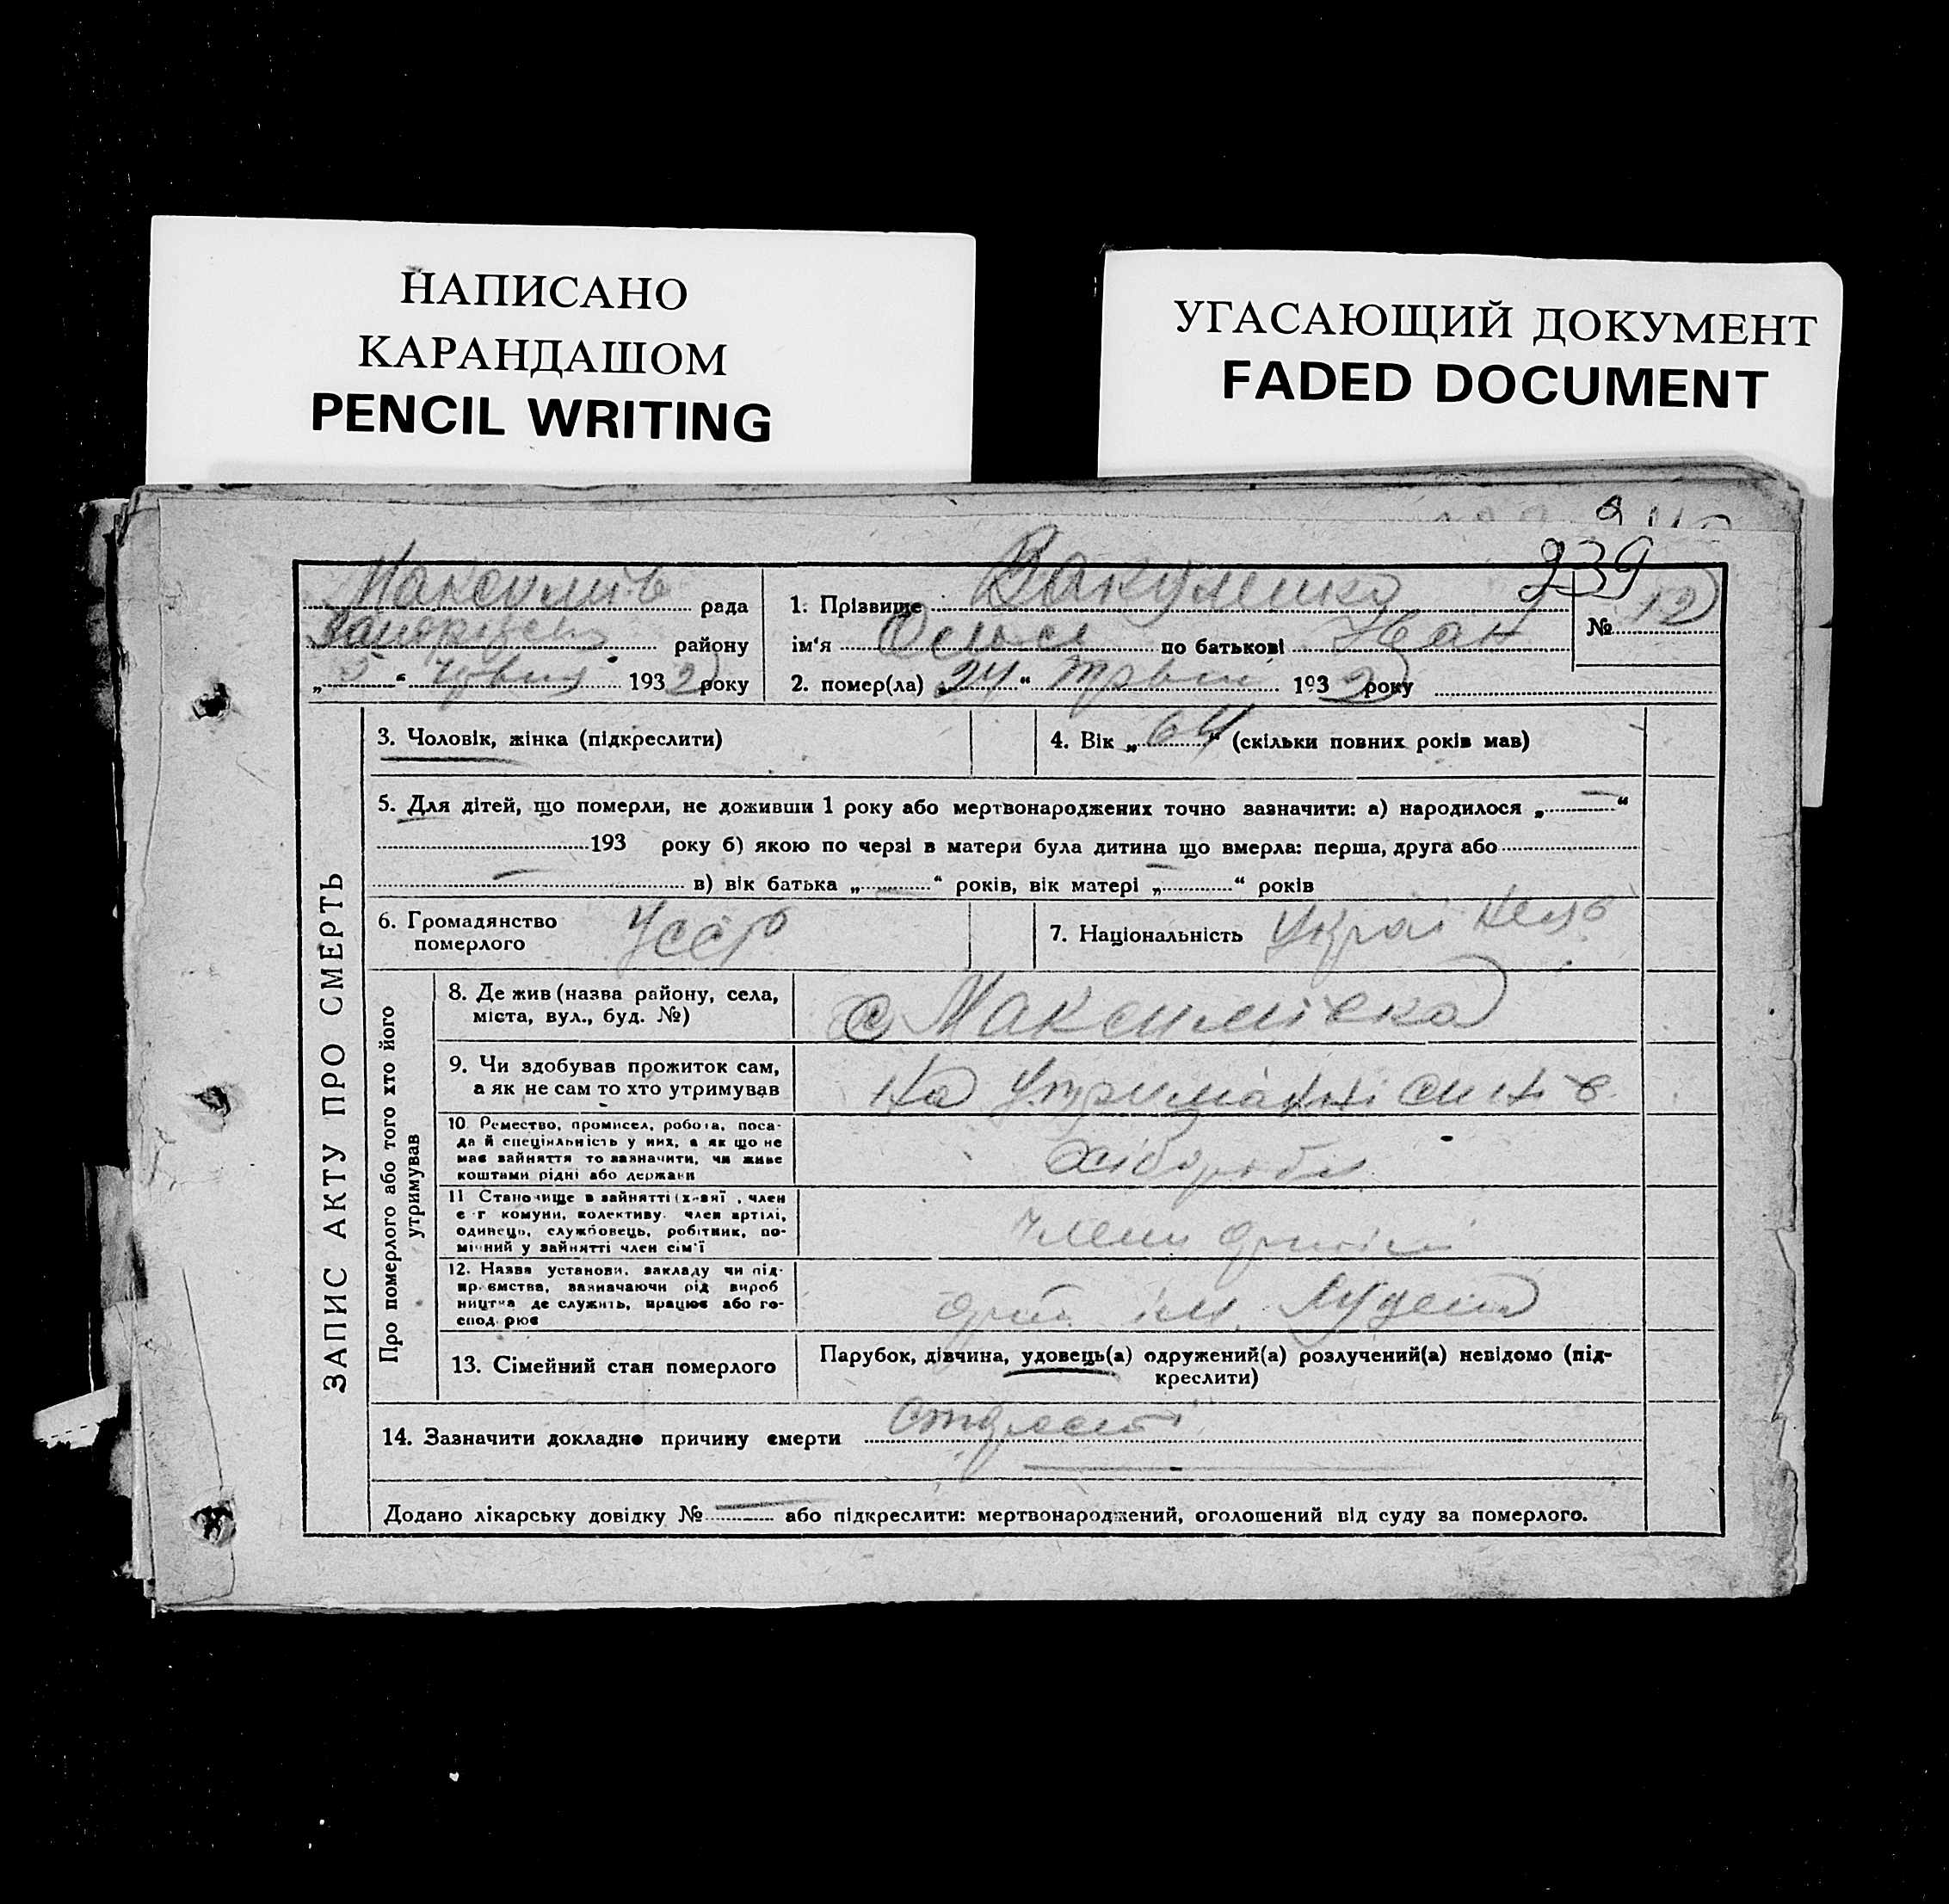 НАПИСАНО
КАРАНДАШОМ
PENCIL WRITING
УГАСАЮЩИЙ ДОКУМЕНТ
FADED DOCUMENT
239
рада
району
„5“ 1932 року
1. Прізвище Вакуленко
№ 12
ім‘я по батькові Іван
2. помер(ла) „24“ 1932 року
ЗАПИС АКТУ ПРО СМЕРТЬ
3. Чоловік, жінка (підкреслити)
4. Вік „64“ (скільки повних років мав)
5. Для дітей, що померли, не доживши 1 року або мертвонароджених точно зазначити: а) народилося „ — “
193 року б) якою по черзі в матери була дитина що вмерла: перша, друга або
— в) вік батька „ — “ років, вік матері „ — “ років
6. Громадянство
померлого
УССР
7. Національність
Українець
Про померлого або того хто його
утримував
8. Де жив (назва району, села,
міста, вул., буд. №)
с Максимівка
9. Чи здобував прожиток сам,
а як не сам то хто утримував
на утриманні синів
10. Ремество, промисел, робота, поса-
да й спеціяльність у них, а як що не
має зайняття то зазначити, чи живе
коштами рідні або держави
11 Становище в зайнятті член
комуни, колективу, член артілі,
одинець, службовець, робітник, по-
мічний у зайнятті член сім'ї
член
12. Назва установи, закладу чи під-
приємства, зазначаючи рід вироб
ництва де служить, працює або го-
спод рює
ім.
13. Сімейний стан померлого
Парубок, дівчина, удовець(а) одружений(а) розлучений(а) невідомо (під-
креслити)
14. Зазначити докладно причину смерти
Додано лікарську довідку № — або підкреслити: мертвонароджений, оголошений від суду за померлого.